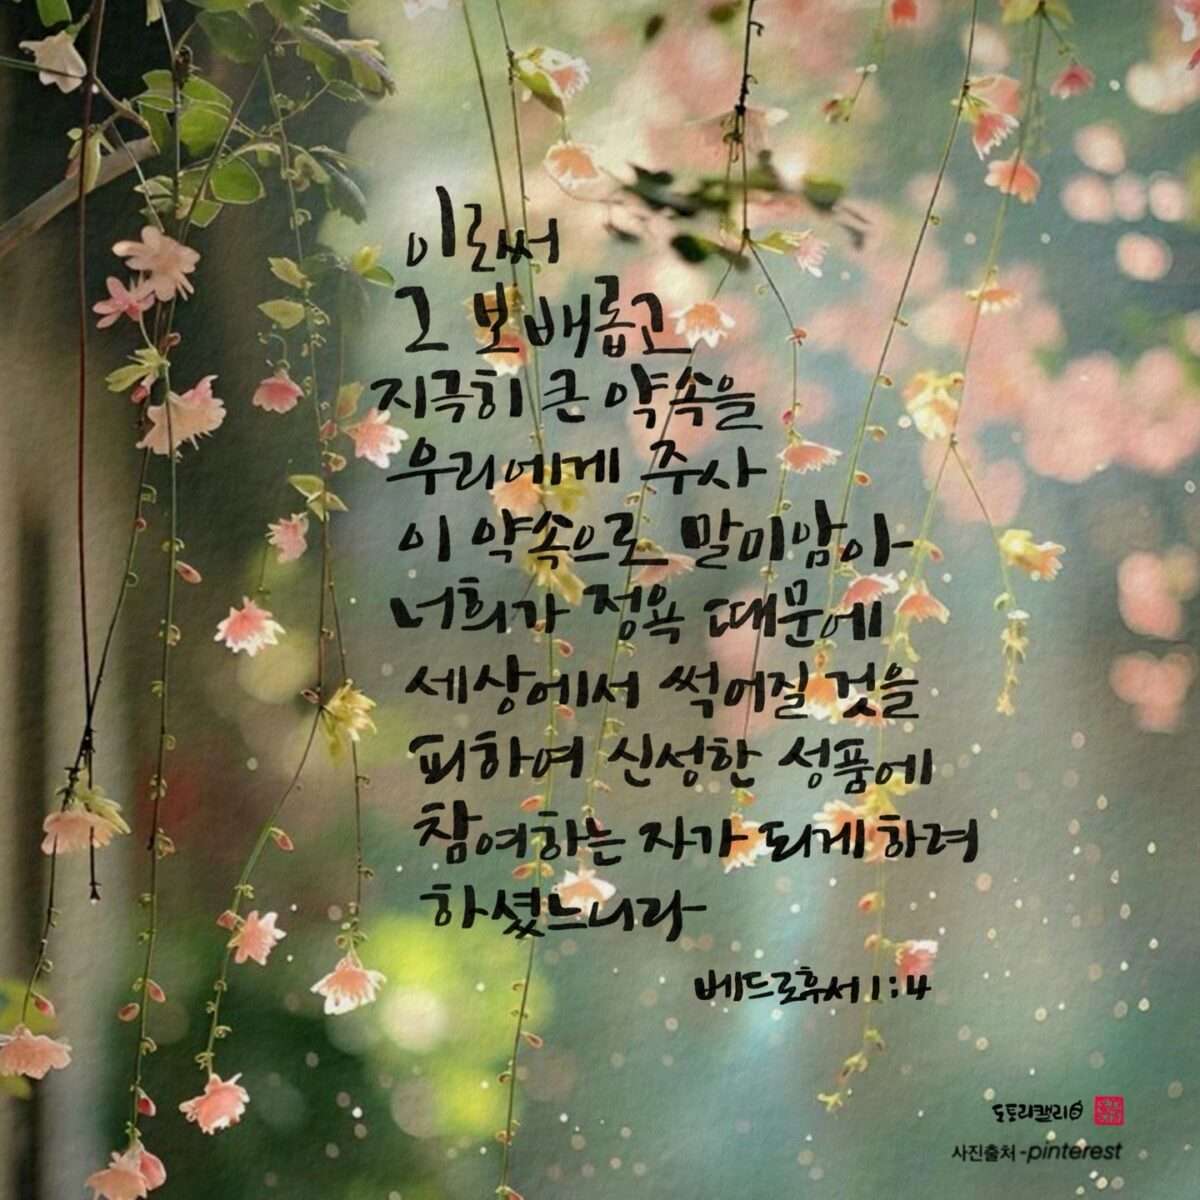 이로써
그 보배롭고
지극히 큰 약속을
우리에게 주사
이 약속으로 말미암아
너희가 정욕 때문에
세상에서 썩어질 것을
피하여 신성한 성품에
참여하는 자가 되게 하려
하셨느니라
베드로후서 1:4
도토리캘리
사진출처-pinterest